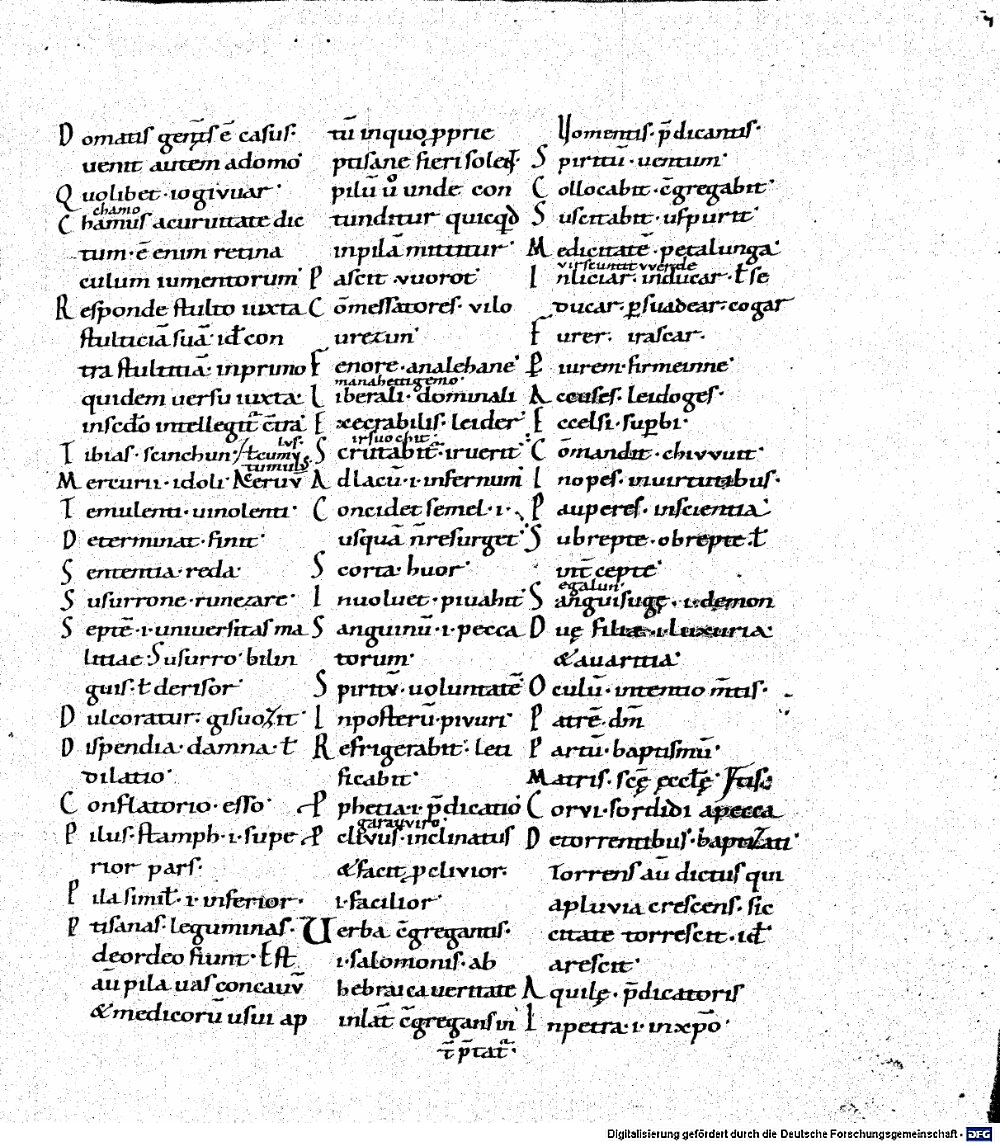 Domatis genͥtiſ ē caſuſ·
uenit autem adomo
Quolibet·iogivuar·
chamo
Chamuſ acuruitate dic
tum·ē enim retina
culum iumentorum·
Reſponde ſtulto iuxta
ſtulticiā ſuā· id con
tra ſtultitiā· inpruno
quidem uerſu iuxta·
inſedo intellegit c̄tra
Tibiaſ·ſcinchun·
Mercurii·idoli
Temulenti·uinolenti·
Determinat·finit·
Sententia·reda·
Suſurrone·runezare·
Septē·i·uniuerſitaſ ma
litiae·Suſurro·bilin
guiſ·ł deriſor·
Dulcoratur·giſuozit·
Diſpendia·damna·ł
dilatio·
Conflatorio·eſſo·
Piluſ·ſtamph·i·ſupe
rior parſ·
Pila ſimił·i·inferior·
Ptiſanaſ·leguminaſ·
deordeo fiunt·ł ſt
aū pila uaſ concauū
&medicorū uſui ap
tū inquo ꝓprie
ptiſane fieri ſolet
pilū ů unde con
tunditur quicqđ
inpilā mittitur·
Paſcit·vuorot·
Cōmeſſatoreſ·vilo
urezun·
Fenore·analehane·
manahettigemo·
Liberali·dominali
Execrabiliſ·leider·
irſuochit·
Scrutabit·iruerit·
Adlacū·i·infernum
Concidet ſemel·i·
uſquā n̄reſurget·
Scorta·huor·
Inuoluet·piuahit
Sanguinū·i·pecca
torum·
Spiritū·uoluntatē
Inpoſterū·pivuri·
Refrigerabit·leti
ficabit·
Pphetia·i·p̄dicatio
garauuiſo·
Clivuſ·inclinatuſ
&facit ꝓclivior·
i·facilior·
Uerba c̄gregantiſ·
i·ſalomoniſ·ab
hebraica ueritate
inlat̄ c̄greganſ in
t̄ptat̄·
Uomentiſ·p̄dicantiſ·
Spiritū·uentum·
Collocabit·c̄gregabit·
Suſcitabit·uſpurit·
Medicitatē·petalunga·
virſcuntit vverde
Inliciar·inducar·ł ſe
ducar·ꝑſuadear·cogar
Furer·iraſcar·
Piurem·firmeinne·
Accuſeſ·leidogeſ·
Excelſi·ſuꝑbi·
Cōmandit·chivvuit·
Inopeſ·inuirtutibuſ·
Paupereſ·inſcientia·
Subrepte·obrepte·ł
int̄cepte·
egalun·
Sanguiſugę·i·demon
Duę filiae·i·luxuria
&auaritia·
Oculū·intentio m̄tiſ·
Patrē·dm̄
Partū·baptiſmū·
Matriſ·ſcę ęccłę·
Corvi·ſordidi apecca
Detorrentibuſ·baptizati·
Torrenſ aū dictuſ qui
apluvia creſcenſ·ſic
citate torreſcit·id
areſcit·
Aquilę·p̄dicatoriſ
Inpetra·i·inxp̄o·
Digitalisierung gefördert durch die Deutsche Forschungsgemeinschaft - DFG